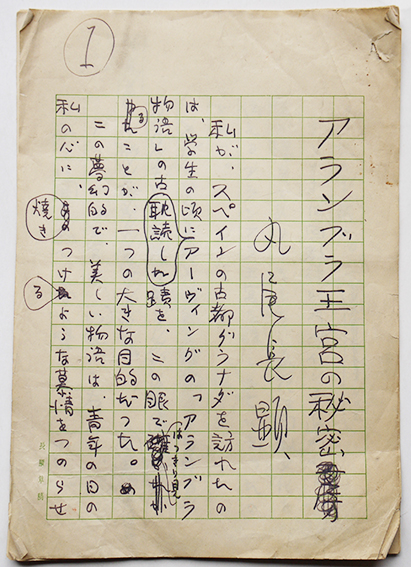 1
アランブラ王宮の秘密
丸尾長顕
私が、スペインの古都グラナダを訪れたの
は、学生の頃にアーヴィングの「アランブラ
耽読した
物語」の古蹟を、この眼で
はっきり見
る
ことが、一つの大きな目的だった。
この夢幻的で、美しい物語は、青年の日の
私の心に、焼きつけるような慕情をつのらせ